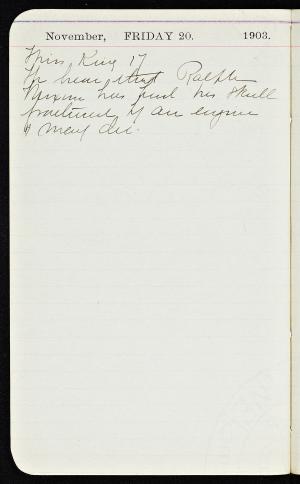 November, FRIDAY 20. 1903.
Miss King 17
We hear that Ralph
has had his skull
fractured by an engine
& may die.